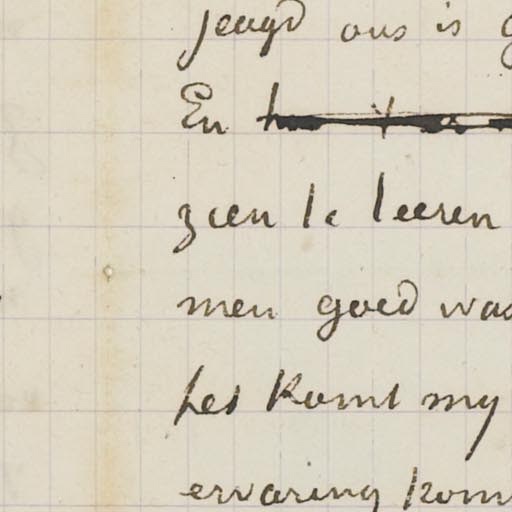 jeugd ons is
En
zien te leeren
men goed was
het komt my
ervaring kom